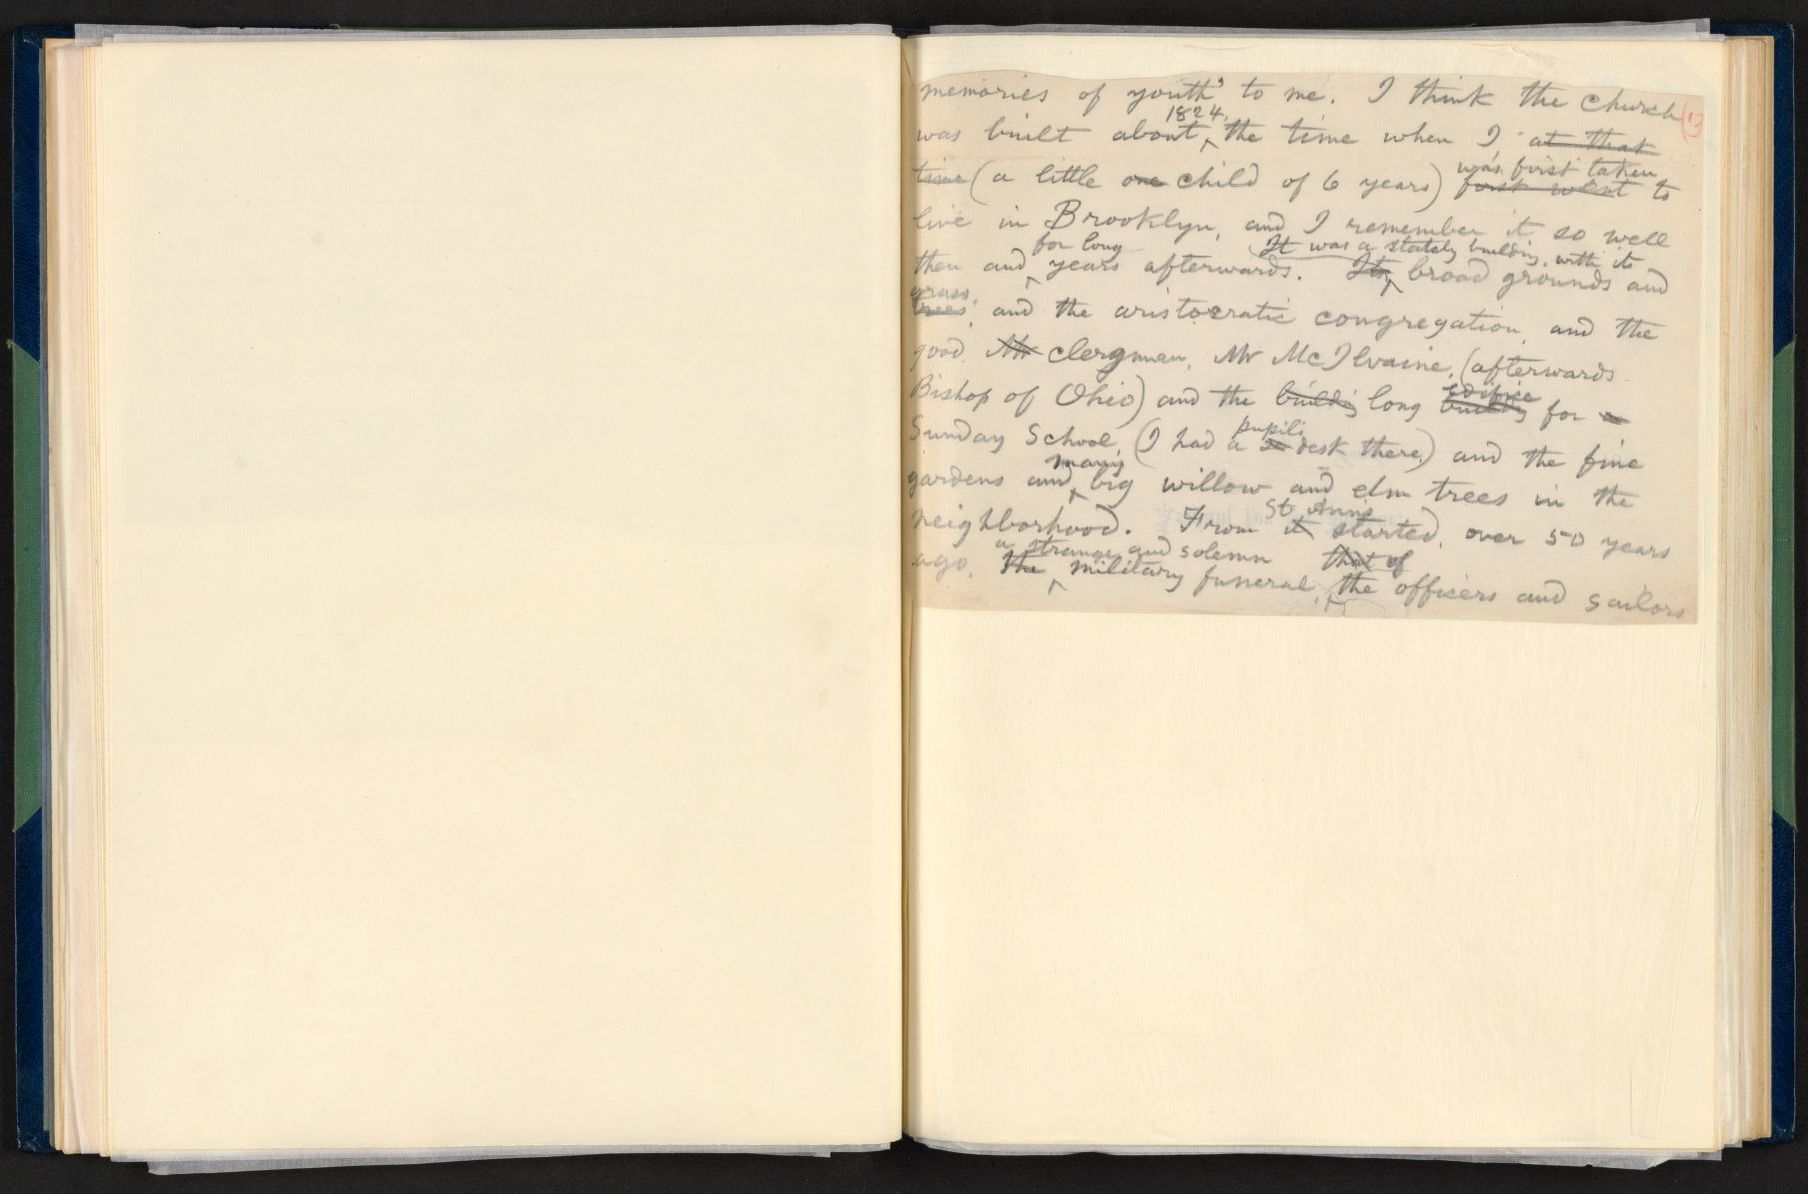 memories of youth' to me. I think the church
13
1824,
was built about the time when I, at that
was first taken
time (a little one child of 6 years) first went to
live in Brooklyn, and I remember it so well
for long It was a stately building, with its
then and years afterwards. Its broad grounds and
grass,
trees, and the aristocratic congregation, and the
good Mr clergyman, Mr McIlvaine, (afterwards
edifice
Bishop of Ohio) and the buildig long buildig for a
pupil's
Sunday School (I had a desk there,) and the fine
many
gardens and big willow and elm trees in the
St Ann's
neighborhood. From it started, over 50 years
a strange and solemn that of
ago, the military funeral, the officers and sailors